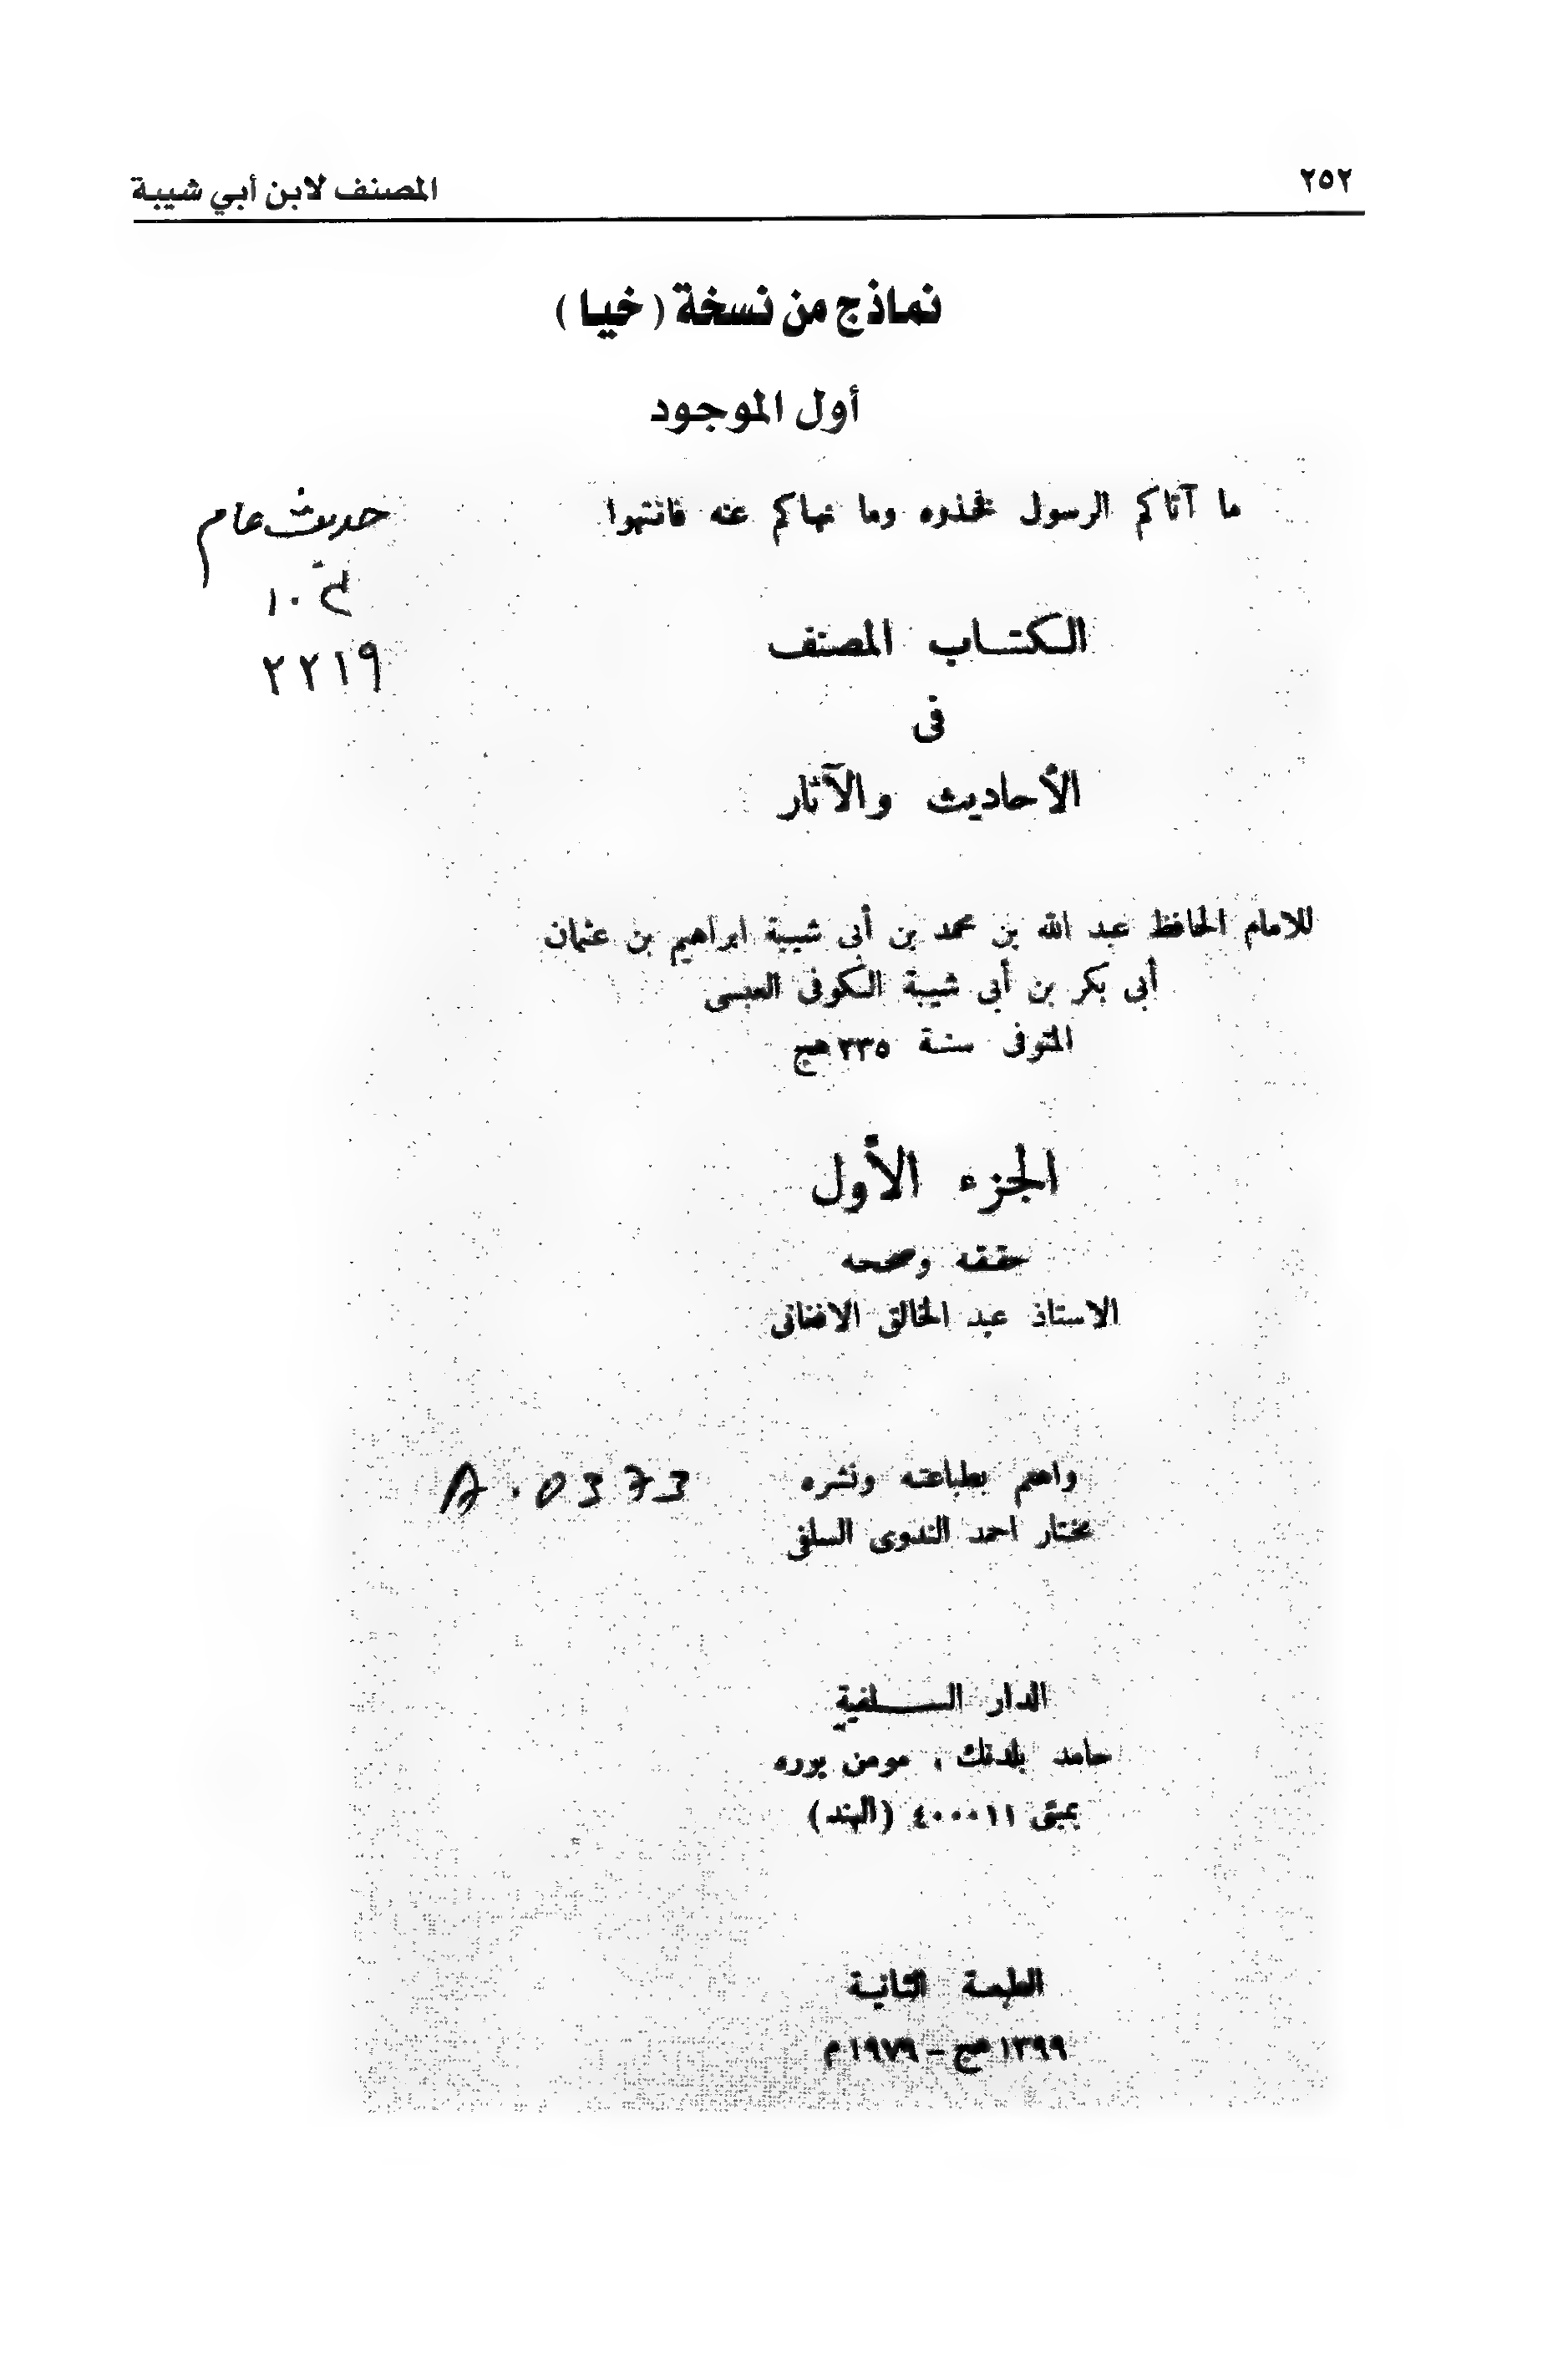 ٢٥٢
المصنف لابن أبي شيبة
نماذج من نسخة (خيا)
أول الموجود
ما آتاكم الرسول فخذوه وما نهاكم عنه فانتهوا
حديث عام
١٠
٢٢١٩
الكتاب المصنف
فى
الأحاديث والآثار
للامام الحافظ عبد الله بن محمد بن أبى شيبة ابراهيم بن عثمان
أبى بكر بن أبى شيبة الكوفى العبسى
المتوفى سنة ٢٣٥ هج
الجزء الأول
حققه وصححه
الاستاذ عبد الخالق الافغانى
واهتم بطباعته ونشره
مختار احمد الندوى السلفى
الدار السلفية
حامد بلدنك ، مومن بوره
بمبئى ٤٠٠٠١١ (الهند)
الطبعة الثانية
١٣٩٩ هج – ١٩٧٩ م